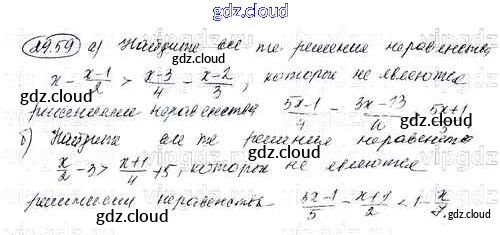 gdz.cloud
29.59 а) Найдите все те решения неравенства
x - (x-1)/2 > (x-3)/4 - (x-2)/3, которые не являются
решениями неравенства (5x-1)/4 - (3x-13)/ (5x+1)/3
б) Найдите все те решения неравенства
x/2 - 3 > (x+1)/4 + 5, которые не являются
решениями неравенства (3x-1)/5 - (x+1)/2 < 1 - x/7.
gdz.cloud
gdz.cloud
gdz.cloud
gdz.cloud
gdz.cloud
gdz.cloud
gdz.cloud